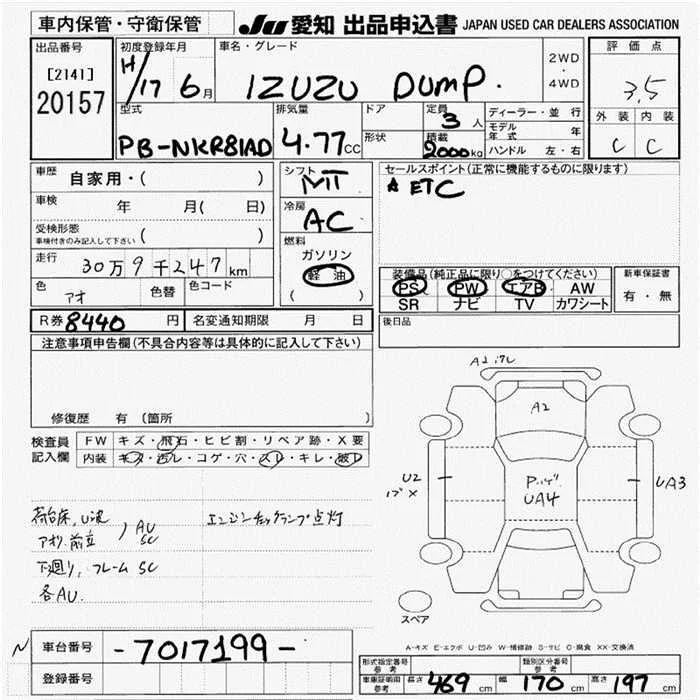 車内保管・守衛保管
JU 愛知 出品申込書 JAPAN USED CAR DEALERS ASSOCIATION
出品番号
[2141]
20157
初度登録年月
H/17 6月
車名・グレード
IZUZU DUMP.
2WD・4WD
評価点
3,5
外装 内装
C C
型式
PB-NKR81AD
排気量
4.77cc
ドア
形状
定員
3人
積載
2000kg
ディーラー・並行
モデル年式 年
ハンドル 左・右
車歴 自家用・( )
車検 年 月( 日)
受検形態
車検付きのみ記入して下さい ( )
走行 30万9千247km
色 アオ 色替 色コード
シフト
MT
冷房
AC
燃料
ガソリン
軽油
( )
セールスポイント(正常に機能するものに限ります)
☆ ETC
装備品(純正品に限り○をつけてください)
PS PW エアB AW
SR ナビ TV カワシート
新車保証書
有・無
R券 8440円 名変通知期限 月 日
後日品
注意事項申告欄(不具合内容等は具体的に記入して下さい)
修復歴 有 (箇所 )
検査員記入欄
FW キズ・飛石・ヒビ割・リペア跡・X要
内装 キズ・汚レ・コゲ・穴・スレ・キレ・破レ
荷台床、U波
アオリ、前立 ) AU SC
下廻り、フレーム SC
各AU.
エンジンチェックランプ点灯
A2
U2
UA4
UA3
スペア
A・キズ E・エクボ U・凹み W・補修跡 S・サビ C・腐食 XX・交換済
N
車台番号 -7017199-
登録番号
形式指定番号
参考
類別区分番号
参考
車庫証明用
参考
長さ 469cm 幅 170cm 高さ 197cm